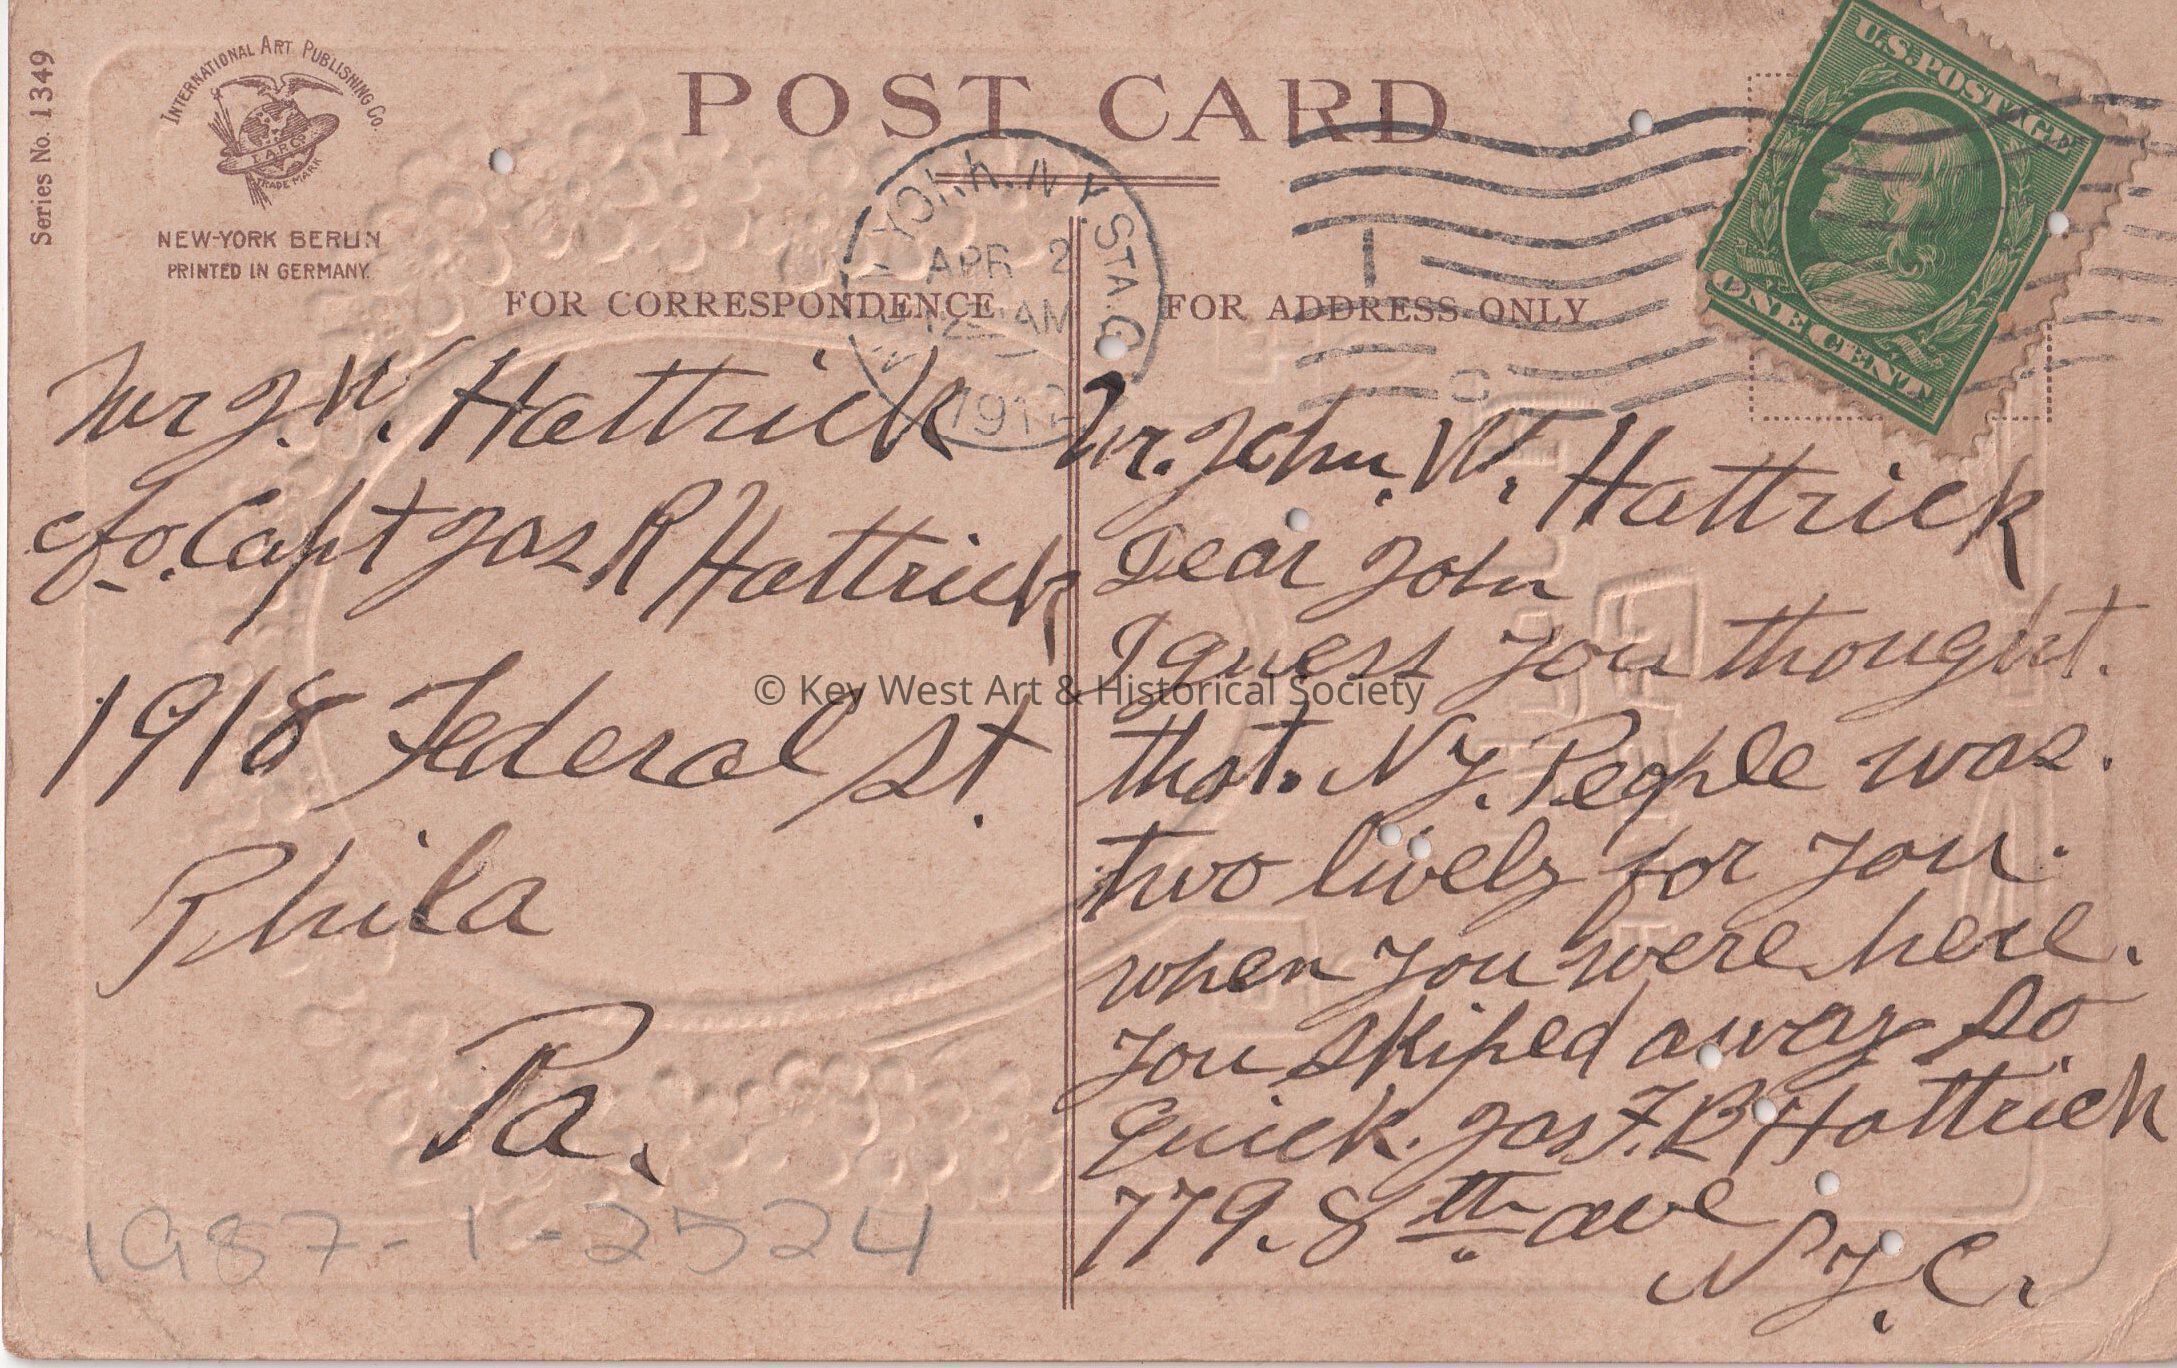 Series No. 1349
INTERNATIONAL ART PUBLISHING CO.
I.A.P.Co.
TRADE MARK
NEW-YORK BERLIN
PRINTED IN GERMANY.
POST CARD
U.S. POSTAGE
ONE CENT
YORK, N.Y. STA. G
APR 2
AM
FOR CORRESPONDENCE
FOR ADDRESS ONLY
Mr J. W. Hattrick
c/o. Capt Jas R Hattrick
1918 Federal St.
Phila
Pa.
1987-1-2524
Mr. John. W. Hattrick
Dear John
I guess you thought.
that. N.Y. People was.
two lively for you.
when you were here.
you skiped away so
quick. Jas F. B Hattrick
779. 8th ave
N.Y.C.
© Key West Art & Historical Society